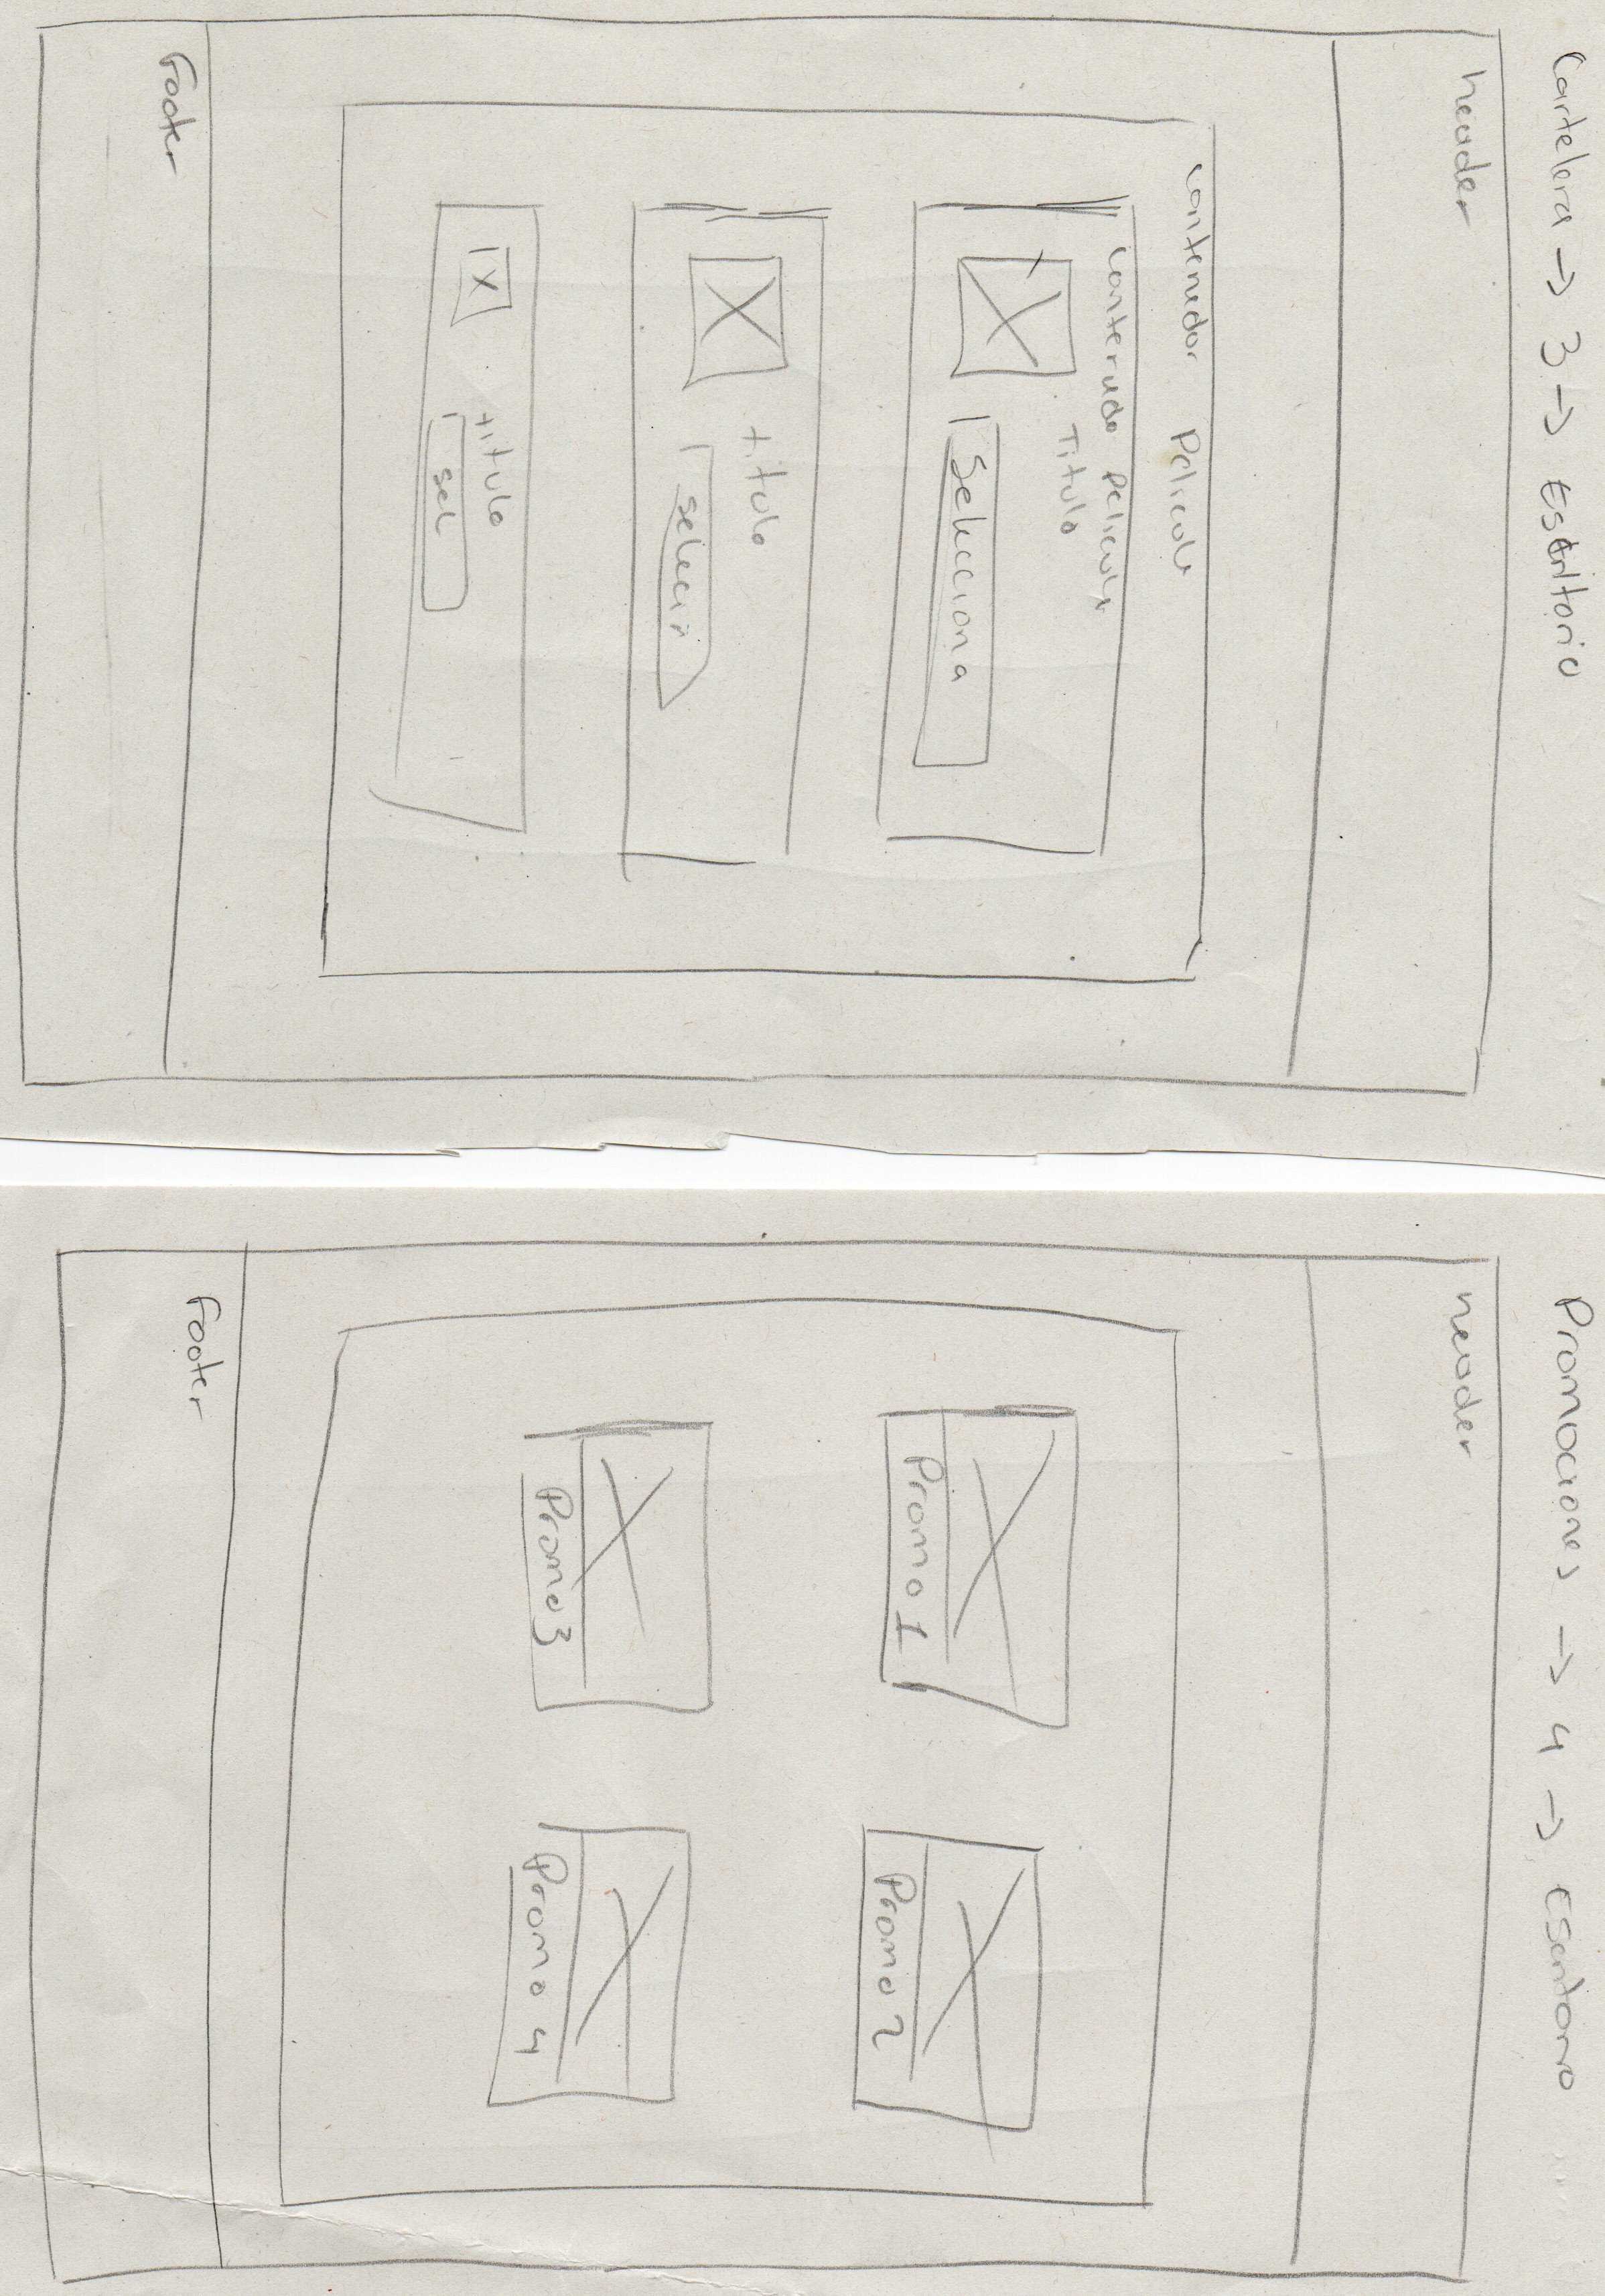 Cartelera → 3 → Escritorio
header
contenedor Pelicula
contenido Pelicula
Titulo
Selecciona
titulo
selecir
titulo
sel
Footer
Promociones → 4 → Escritorio
header
Promo 1
Promo 2
Promo 3
Promo 4
Footer